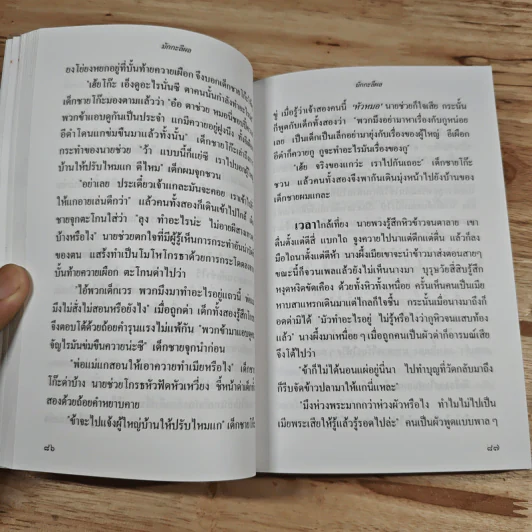 มักกะลีผล
ยงโย่ยงหยกอยู่ที่บั้นท้ายควายเผือก จึงบอกเด็กชายโก๊ะว่า
"เฮ้ยโก๊ะ เอ็งดูอะไรนั่นซี ตาคนนั้นกำลังทำอะไร
เด็กชายโก๊ะมองตามแล้วว่า "อ๋อ ตาช่วย หมอนี่พอกเมีย
พวกข้าแอบดูกันเป็นประจำ แกมีควายอยู่ฝูงนึง ทั้งฝูง
อีดำโดนแกข่มขืนมาแล้วทั้งนั้น" เด็กชายโก๊ะเล่าถึง
กระทำของนายช่วย "ว้า แบบนี้ก็แย่ซี เราไปบอกผู้ใหญ่
บ้านให้ปรับไหมแก ดีไหม" เด็กผมจุกชวน
"อย่าเลย ประเดี๋ยวเจ้าแกละมันจะคอย เราเข้าไป
ให้แกอายเล่นดีกว่า" แล้วคนทั้งสองก็เดินเข้าไปใกล้ เด็ก
ชายจุกตะโกนใส่ว่า "ลุง ทำอะไรน่ะ ไม่อายผีสาง
บ้างหรือไง" นายช่วยตกใจที่มีผู้รู้เห็นการกระทำอันน่า
ของตน แสร้งทำเป็นโมโหโกรธาด้วยการกระโดดลง
บั้นท้ายควายเผือก ตะโกนด่าไปว่า
"ไอ้พวกเด็กเวร พวกมึงมาทำอะไรอยู่แถวนี้ พ่อแม่
มึงไม่สั่งไม่สอนหรือยังไง" เมื่อถูกด่า เด็กทั้งสองรู้สึกโกรธ
จึงตอบโต้ด้วยถ้อยคำรุนแรงไม่แพ้กัน "พวกข้ามาแอบดู
จัญไรมันข่มขืนควายน่ะซี" เด็กชายจุกนำก่อน
"พ่อแม่แกสอนให้เอาควายทำเมียหรือไง" เด็กชาย
โก๊ะด่าบ้าง นายช่วยโกรธหัวฟัดหัวเหวี่ยง ชี้หน้าด่าเด็ก
สองด้วยถ้อยคำหยาบคาย
"ข้าจะไปแจ้งผู้ใหญ่บ้านให้ปรับไหมแก" เด็กชายโก๊ะ
๘๖
มักกะลีผล
ขู่ เมื่อรู้ว่าเจ้าสองคนนี้ 'หัวหมอ' นายช่วยก็ใจเสีย กระนั้น
ก็พูดกับเด็กทั้งสองว่า "พวกมึงอย่ามาหาเรื่องกับกูหน่อย
เลย เป็นเด็กเป็นเล็กอย่ามายุ่งกับเรื่องของผู้ใหญ่ อีเผือก
อีดำก็ควายกู กูจะทำอะไรมันก็เรื่องของกู"
"เฮ้ย จริงของแกว่ะ เราไปกันเถอะ" เด็กชายโก๊ะ
ชวน แล้วคนทั้งสองจึงพากันเดินมุ่งหน้าไปยังบ้านของ
เด็กชายผมแกละ
เวลาใกล้เที่ยง นายพวงรู้สึกหิวข้าวจนตาลาย เขา
ตื่นตั้งแต่ตีสี่ แบกไถ จูงควายไปนาแต่ดึกแต่ดื่น แล้วก็ลง
มือไถนาตั้งแต่ตีห้า นางผึ้งเมียเขาจะนำข้าวมาส่งตอนสายๆ
ขณะนี้ก็จวนเพลแล้วยังไม่เห็นนางมา บุรุษวัยสี่สิบรู้สึก
หงุดหงิดขัดเคือง ด้วยทั้งหิวทั้งเหนื่อย ครั้นเห็นคนเป็นเมีย
หาบสาแหรกเดินมาแต่ไกลก็ใจชื้น กระนั้นเมื่อนางมาถึงก็
อดด่ามิได้ "มัวทำอะไรอยู่ ไม่รู้หรือไงว่ากูหิวจนแสบท้อง
แล้ว" นางผึ้งมาเหนื่อยๆ เมื่อถูกคนเป็นผัวด่าก็อารมณ์เสีย
จึงโต้ไปว่า
"ข้าก็ไม่ได้นอนแผ่อยู่นี่นา ไปทำบุญที่วัดกลับมาถึง
ก็รีบจัดข้าวปลามาให้แกนี่แหละ"
"มึงห่วงพระมากกว่าห่วงผัวหรือไง ทำไมไม่ไปเป็น
เมียพระเสียให้รู้แล้วรู้รอดไปล่ะ" คนเป็นผัวพูดแบบพาลๆ
๘๗